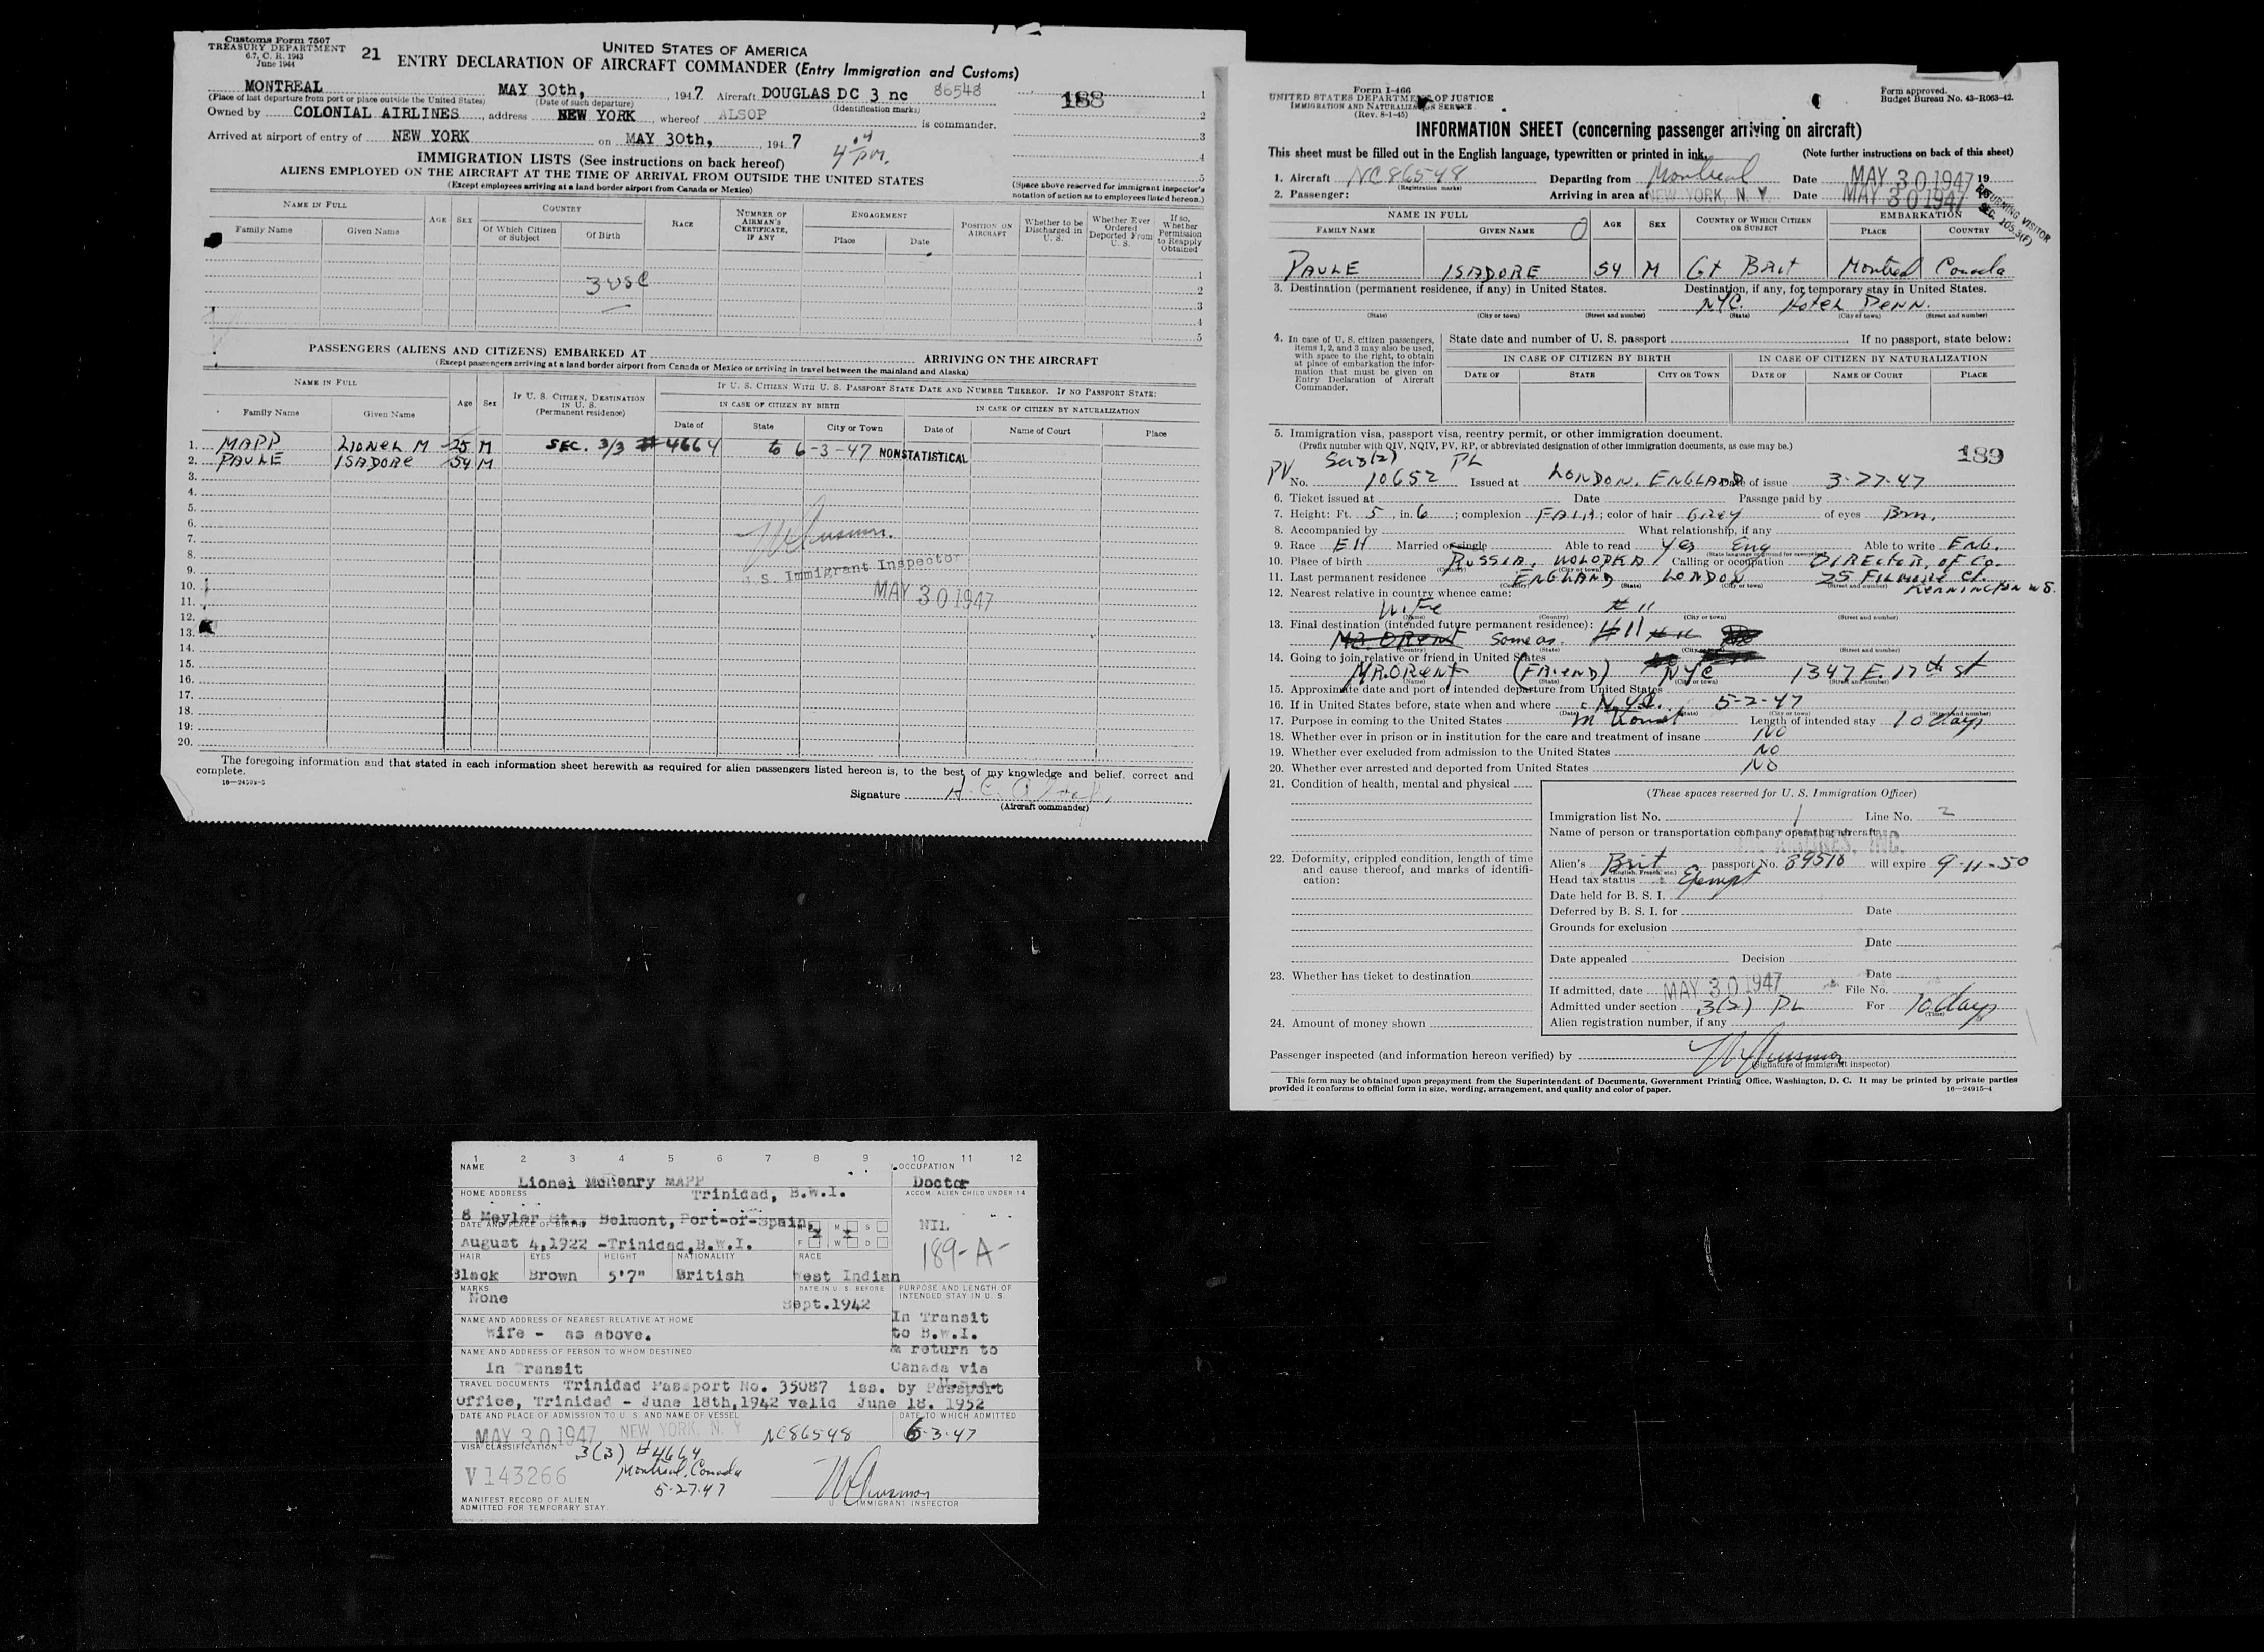 Customs Form 7507
TREASURY DEPARTMENT
6.7, C. R. 1943
June 1944
21
UNITED STATES OF AMERICA
ENTRY DECLARATION OF AIRCRAFT COMMANDER (Entry Immigration and Customs)
MONTREAL MAY 30th, , 1947 Aircraft DOUGLAS DC 3 nc 86548
(Place of last departure from port or place outside the United States) (Date of such departure) (Identification marks)
Owned by COLONIAL AIRLINES, address NEW YORK, whereof ALSOP is commander.
Arrived at airport of entry of NEW YORK on MAY 30th, , 1947
188
1
2
3
4
5
IMMIGRATION LISTS (See instructions on back hereof)
ALIENS EMPLOYED ON THE AIRCRAFT AT THE TIME OF ARRIVAL FROM OUTSIDE THE UNITED STATES
(Except employees arriving at a land border airport from Canada or Mexico)
(Space above reserved for immigrant inspector's notation of action as to employees listed hereon.)
NAME IN FULL AGE SEX COUNTRY RACE NUMBER OF AIRMAN'S CERTIFICATE, IF ANY ENGAGEMENT POSITION ON AIRCRAFT Whether to be Discharged in U. S. Whether Ever Ordered Deported From U. S. If so, Whether Permission to Reapply Obtained
Family Name Given Name Of Which Citizen or Subject Of Birth Place Date
3 USC
1
2
3
4
5
PASSENGERS (ALIENS AND CITIZENS) EMBARKED AT ARRIVING ON THE AIRCRAFT
(Except passengers arriving at a land border airport from Canada or Mexico or arriving in travel between the mainland and Alaska)
NAME IN FULL Age Sex IF U. S. CITIZEN, DESTINATION IN U. S. (Permanent residence) IF U. S. CITIZEN WITH U. S. PASSPORT STATE DATE AND NUMBER THEREOF. IF NO PASSPORT STATE:
IN CASE OF CITIZEN BY BIRTH IN CASE OF CITIZEN BY NATURALIZATION
Family Name Given Name Date of State City or Town Date of Name of Court Place
1. MAPP LIONEL M 25 M SEC. 3/3 # 4664 to 6-3-47 NONSTATISTICAL
2. PAULE ISADORE 54 M
3.
4.
5.
6.
7.
8.
9.
10.
11.
12.
13.
14.
15.
16.
17.
18.
19.
20.
U.S. Immigrant Inspector
MAY 30 1947
The foregoing information and that stated in each information sheet herewith as required for alien passengers listed hereon is, to the best of my knowledge and belief, correct and
complete.
16—24592-5
Signature
(Aircraft commander)
Form I-466
UNITED STATES DEPARTMENT OF JUSTICE
IMMIGRATION AND NATURALIZATION SERVICE
(Rev. 8-1-45)
Form approved.
Budget Bureau No. 43-R063-42.
INFORMATION SHEET (concerning passenger arriving on aircraft)
This sheet must be filled out in the English language, typewritten or printed in ink. (Note further instructions on back of this sheet)
1. Aircraft NC86548 Departing from Montreal Date MAY 30 1947 19
(Registration marks)
2. Passenger: Arriving in area at NEW YORK, N. Y. Date MAY 30 1947
RETURNING VISITOR
SEC. 105.3(F)
NAME IN FULL AGE SEX COUNTRY OF WHICH CITIZEN OR SUBJECT EMBARKATION
FAMILY NAME GIVEN NAME PLACE COUNTRY
PAULE ISADORE 54 M Gt Brit Montreal Canada
3. Destination (permanent residence, if any) in United States. Destination, if any, for temporary stay in United States.
NYC. Hotel Penn.
(State) (City or town) (Street and number) (State) (City or town) (Street and number)
4. In case of U. S. citizen passengers, items 1, 2, and 3 may also be used, with space to the right, to obtain at place of embarkation the information that must be given on Entry Declaration of Aircraft Commander.
State date and number of U. S. passport If no passport, state below:
IN CASE OF CITIZEN BY BIRTH IN CASE OF CITIZEN BY NATURALIZATION
DATE OF STATE CITY OR TOWN DATE OF NAME OF COURT PLACE
5. Immigration visa, passport visa, reentry permit, or other immigration document.
(Prefix number with QIV, NQIV, PV, RP, or abbreviated designation of other immigration documents, as case may be.)
189
PV No. 10652 Issued at LONDON, ENGLAND Date of issue 3-27-47
6. Ticket issued at Date Passage paid by
7. Height: Ft. 5, in. 6; complexion FAIR; color of hair GREY of eyes Brn.
8. Accompanied by What relationship, if any
9. Race EH Married or single Able to read yes Eng Able to write ENG.
10. Place of birth RUSSIA, WOLODKA Calling or occupation DIRECTOR, of Co.
11. Last permanent residence ENGLAND LONDON 25 Filmore Ct.
12. Nearest relative in country whence came:
WIFE # 11
13. Final destination (intended future permanent residence):
Mr. ORENT Same as. #11
14. Going to join relative or friend in United States
MR. ORENT (FRIEND) NYC 1347 E. 17th St
15. Approximate date and port of intended departure from United States
16. If in United States before, state when and where N.Y.C. 5-2-47
17. Purpose in coming to the United States Length of intended stay 10 days
18. Whether ever in prison or in institution for the care and treatment of insane No
19. Whether ever excluded from admission to the United States No
20. Whether ever arrested and deported from United States No
21. Condition of health, mental and physical
22. Deformity, crippled condition, length of time and cause thereof, and marks of identification:
23. Whether has ticket to destination
24. Amount of money shown
(These spaces reserved for U. S. Immigration Officer)
Immigration list No. 1 Line No. 2
Name of person or transportation company operating aircraft
AIRLINES, INC.
Alien's Brit passport No. 89510 will expire 9-11-50
(English, French, etc.)
Head tax status Exempt
Date held for B. S. I.
Deferred by B. S. I. for Date
Grounds for exclusion
Date
Date appealed Decision
Date
If admitted, date MAY 30 1947 File No.
Admitted under section 3(2) PL For 10 days
(Time)
Alien registration number, if any
Passenger inspected (and information hereon verified) by
(Signature of immigrant inspector)
This form may be obtained upon prepayment from the Superintendent of Documents, Government Printing Office, Washington, D. C. It may be printed by private parties
provided it conforms to official form in size, wording, arrangement, and quality and color of paper. 16—24915-4
1 2 3 4 5 6 7 8 9 10 11 12
NAME OCCUPATION
Lionel McHenry MAPP Doctor
HOME ADDRESS Trinidad, B.W.I. ACCOM. ALIEN CHILD UNDER 14
8 Meyler St., Belmont, Port-of-Spain, NIL
DATE AND PLACE OF BIRTH M M S
August 4,1922 -Trinidad,B.W.I. F W D
189-A-
HAIR EYES HEIGHT NATIONALITY RACE
Black Brown 5'7" British West Indian
MARKS DATE IN U. S. BEFORE PURPOSE AND LENGTH OF INTENDED STAY IN U. S.
None Sept.1942
In Transit
to B.W.I.
& return to
Canada via
U.S.A.
NAME AND ADDRESS OF NEAREST RELATIVE AT HOME
Wife - as above.
NAME AND ADDRESS OF PERSON TO WHOM DESTINED
In Transit
TRAVEL DOCUMENTS Trinidad Passport No. 35087 iss. by Passport
Office, Trinidad - June 18th,1942 valid June 18. 1952
DATE AND PLACE OF ADMISSION TO U. S. AND NAME OF VESSEL DATE TO WHICH ADMITTED
MAY 30 1947 NEW YORK, N. Y NC86548 6-3-47
VISA CLASSIFICATION 3(3) #4664
V143266 Montreal, Canada
5-27-47
MANIFEST RECORD OF ALIEN
ADMITTED FOR TEMPORARY STAY.
U. S. IMMIGRANT INSPECTOR